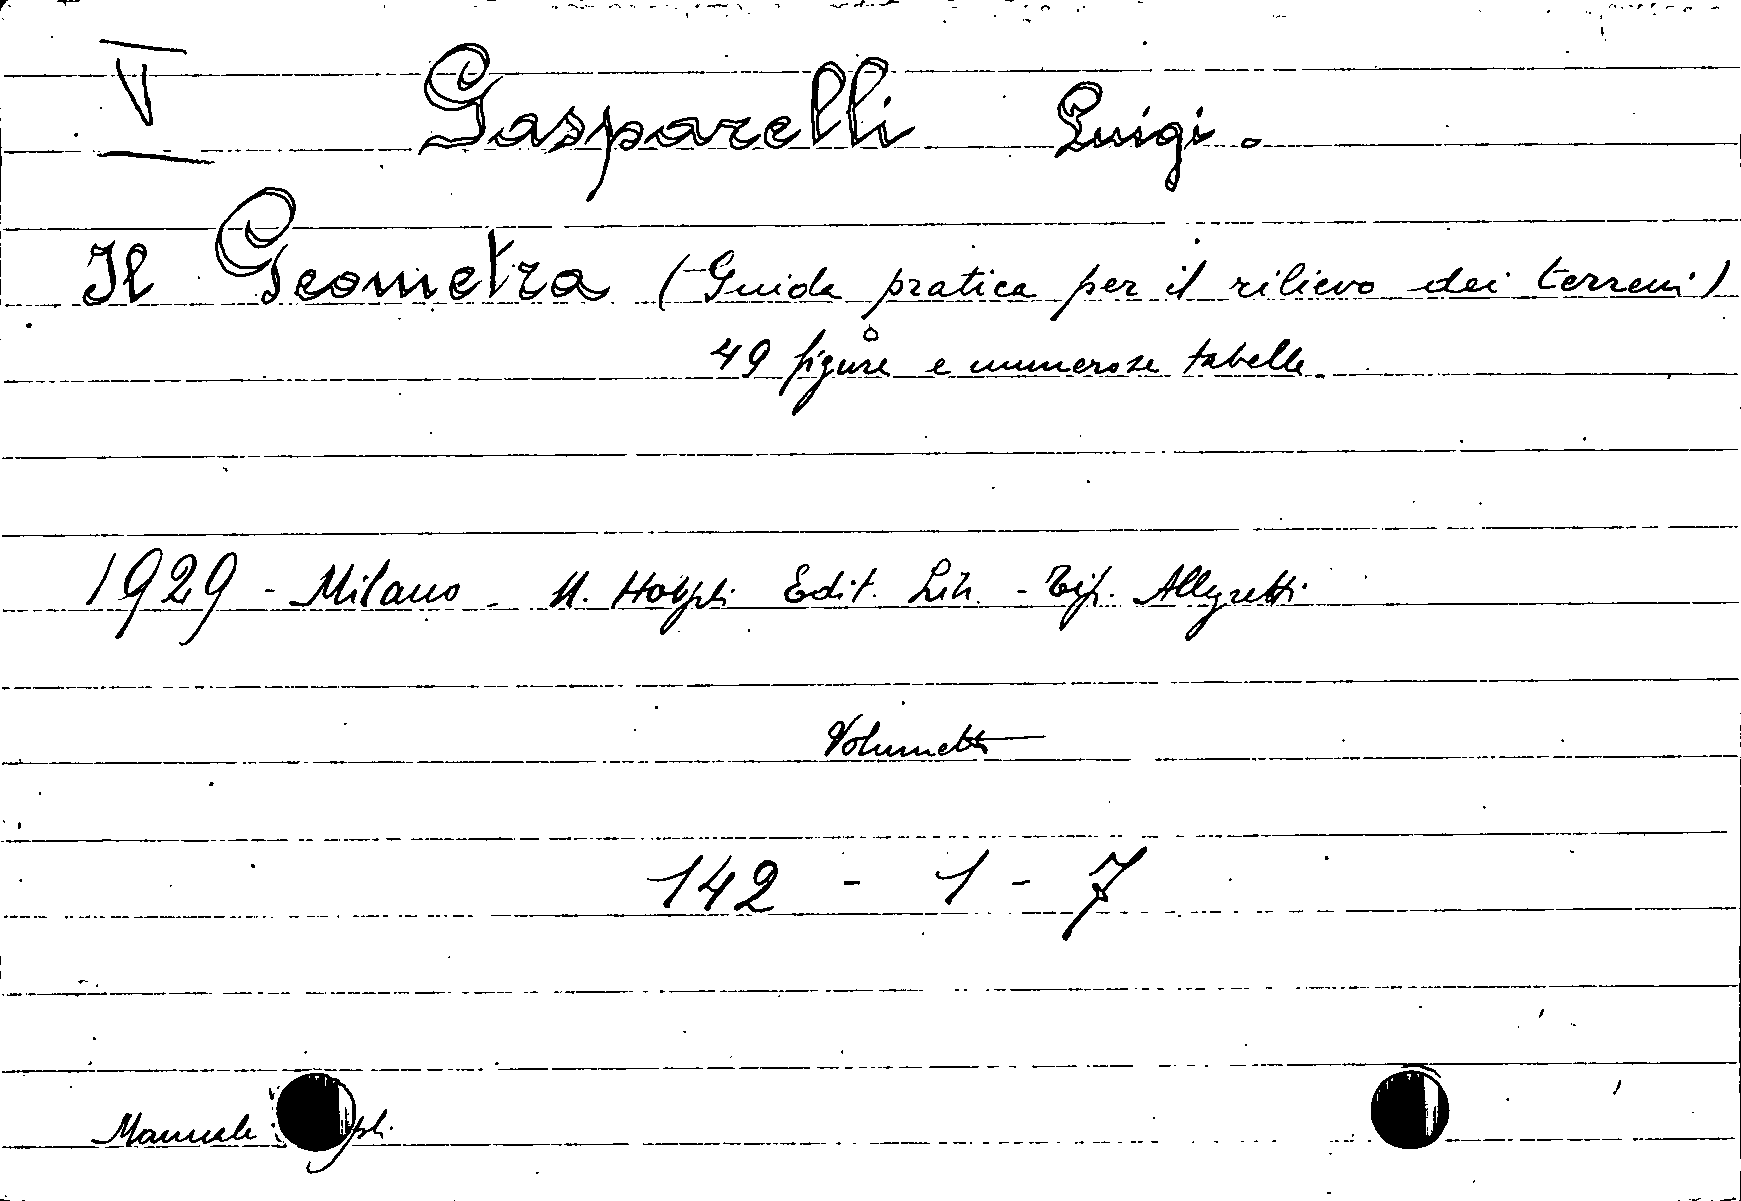 V Gasparelli Luigi.
Il Geometra (Guida pratica per il rilievo dei terreni)
49 figure e numerose tabelle.
1929 - Milano - U. Hoepli Edit. Lib. - Tip. Allegretti
Volumetto
142 - 1 - 7
Manuale